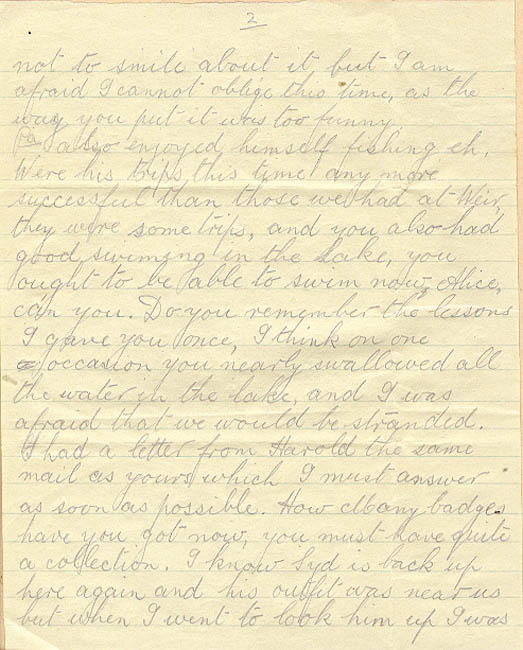 2
not to smile about it but I am
afraid I cannot oblige this time, as the
way you put it was too funny
Pa also enjoyed himself fishing eh.
Were his trips this time any more
successful than those we had at Weir,
they were some trips, and you also had
good swiming in the Lake, you
ought to be able to swim now, Alice,
can you. Do you remember the lessons
I gave you once, I think on one
occasion you nearly swallowed all
the water in the lake, and I was
afraid that we would be stranded.
I had a letter from Harold the same
mail as yours which I must answer
as soon as possible. How Many badges
have you got now, you must have quite
a collection. I know Syd is back up
here again and his outfit was near us
but when I went to look him up I was